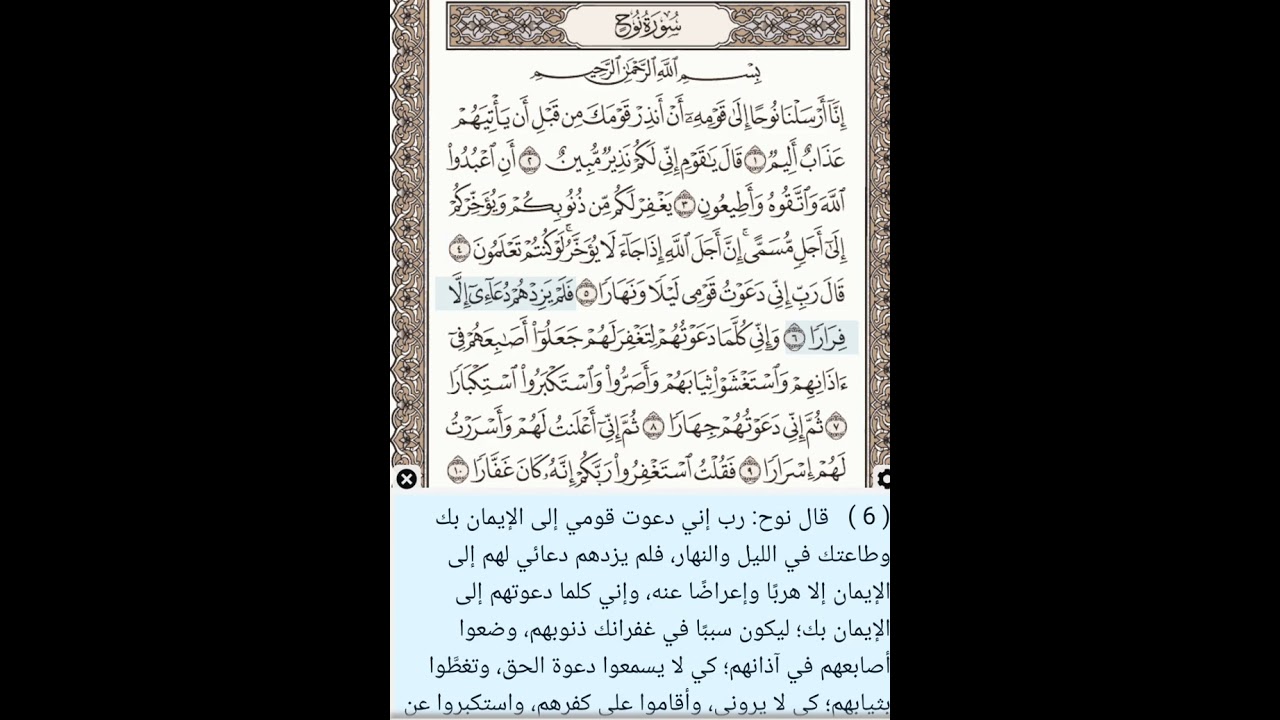 سُورَةُ نُوحٍ
بِسْمِ ٱللَّهِ ٱلرَّحْمَٰنِ ٱلرَّحِيمِ
إِنَّآ أَرْسَلْنَا نُوحًا إِلَىٰ قَوْمِهِۦٓ أَنْ أَنذِرْ قَوْمَكَ مِن قَبْلِ أَن يَأْتِيَهُمْ
عَذَابٌ أَلِيمٌ ١ قَالَ يَٰقَوْمِ إِنِّى لَكُمْ نَذِيرٌ مُّبِينٌ ٢ أَنِ ٱعْبُدُوا۟
ٱللَّهَ وَٱتَّقُوهُ وَأَطِيعُونِ ٣ يَغْفِرْ لَكُم مِّن ذُنُوبِكُمْ وَيُؤَخِّرْكُمْ
إِلَىٰٓ أَجَلٍ مُّسَمًّى ۚ إِنَّ أَجَلَ ٱللَّهِ إِذَا جَآءَ لَا يُؤَخَّرُ ۖ لَوْ كُنتُمْ تَعْلَمُونَ ٤
قَالَ رَبِّ إِنِّى دَعَوْتُ قَوْمِى لَيْلًا وَنَهَارًا ٥ فَلَمْ يَزِدْهُمْ دُعَآءِىٓ إِلَّا
فِرَارًا ٦ وَإِنِّى كُلَّمَا دَعَوْتُهُمْ لِتَغْفِرَ لَهُمْ جَعَلُوٓا۟ أَصَٰبِعَهُمْ فِىٓ
ءَاذَانِهِمْ وَٱسْتَغْشَوْا۟ ثِيَابَهُمْ وَأَصَرُّوا۟ وَٱسْتَكْبَرُوا۟ ٱسْتِكْبَارًا
٧ ثُمَّ إِنِّى دَعَوْتُهُمْ جِهَارًا ٨ ثُمَّ إِنِّىٓ أَعْلَنتُ لَهُمْ وَأَسْرَرْتُ
لَهُمْ إِسْرَارًا ٩ فَقُلْتُ ٱسْتَغْفِرُوا۟ رَبَّكُمْ إِنَّهُۥ كَانَ غَفَّارًا ١٠
( 6 ) قال نوح: رب إني دعوت قومي إلى الإيمان بك
وطاعتك في الليل والنهار، فلم يزدهم دعائي لهم إلى
الإيمان إلا هربًا وإعراضًا عنه، وإني كلما دعوتهم إلى
الإيمان بك؛ ليكون سببًا في غفرانك ذنوبهم، وضعوا
أصابعهم في آذانهم؛ كي لا يسمعوا دعوة الحق، وتغطَّوا
بثيابهم؛ كي لا يروني، وأقاموا على كفرهم، واستكبروا عن